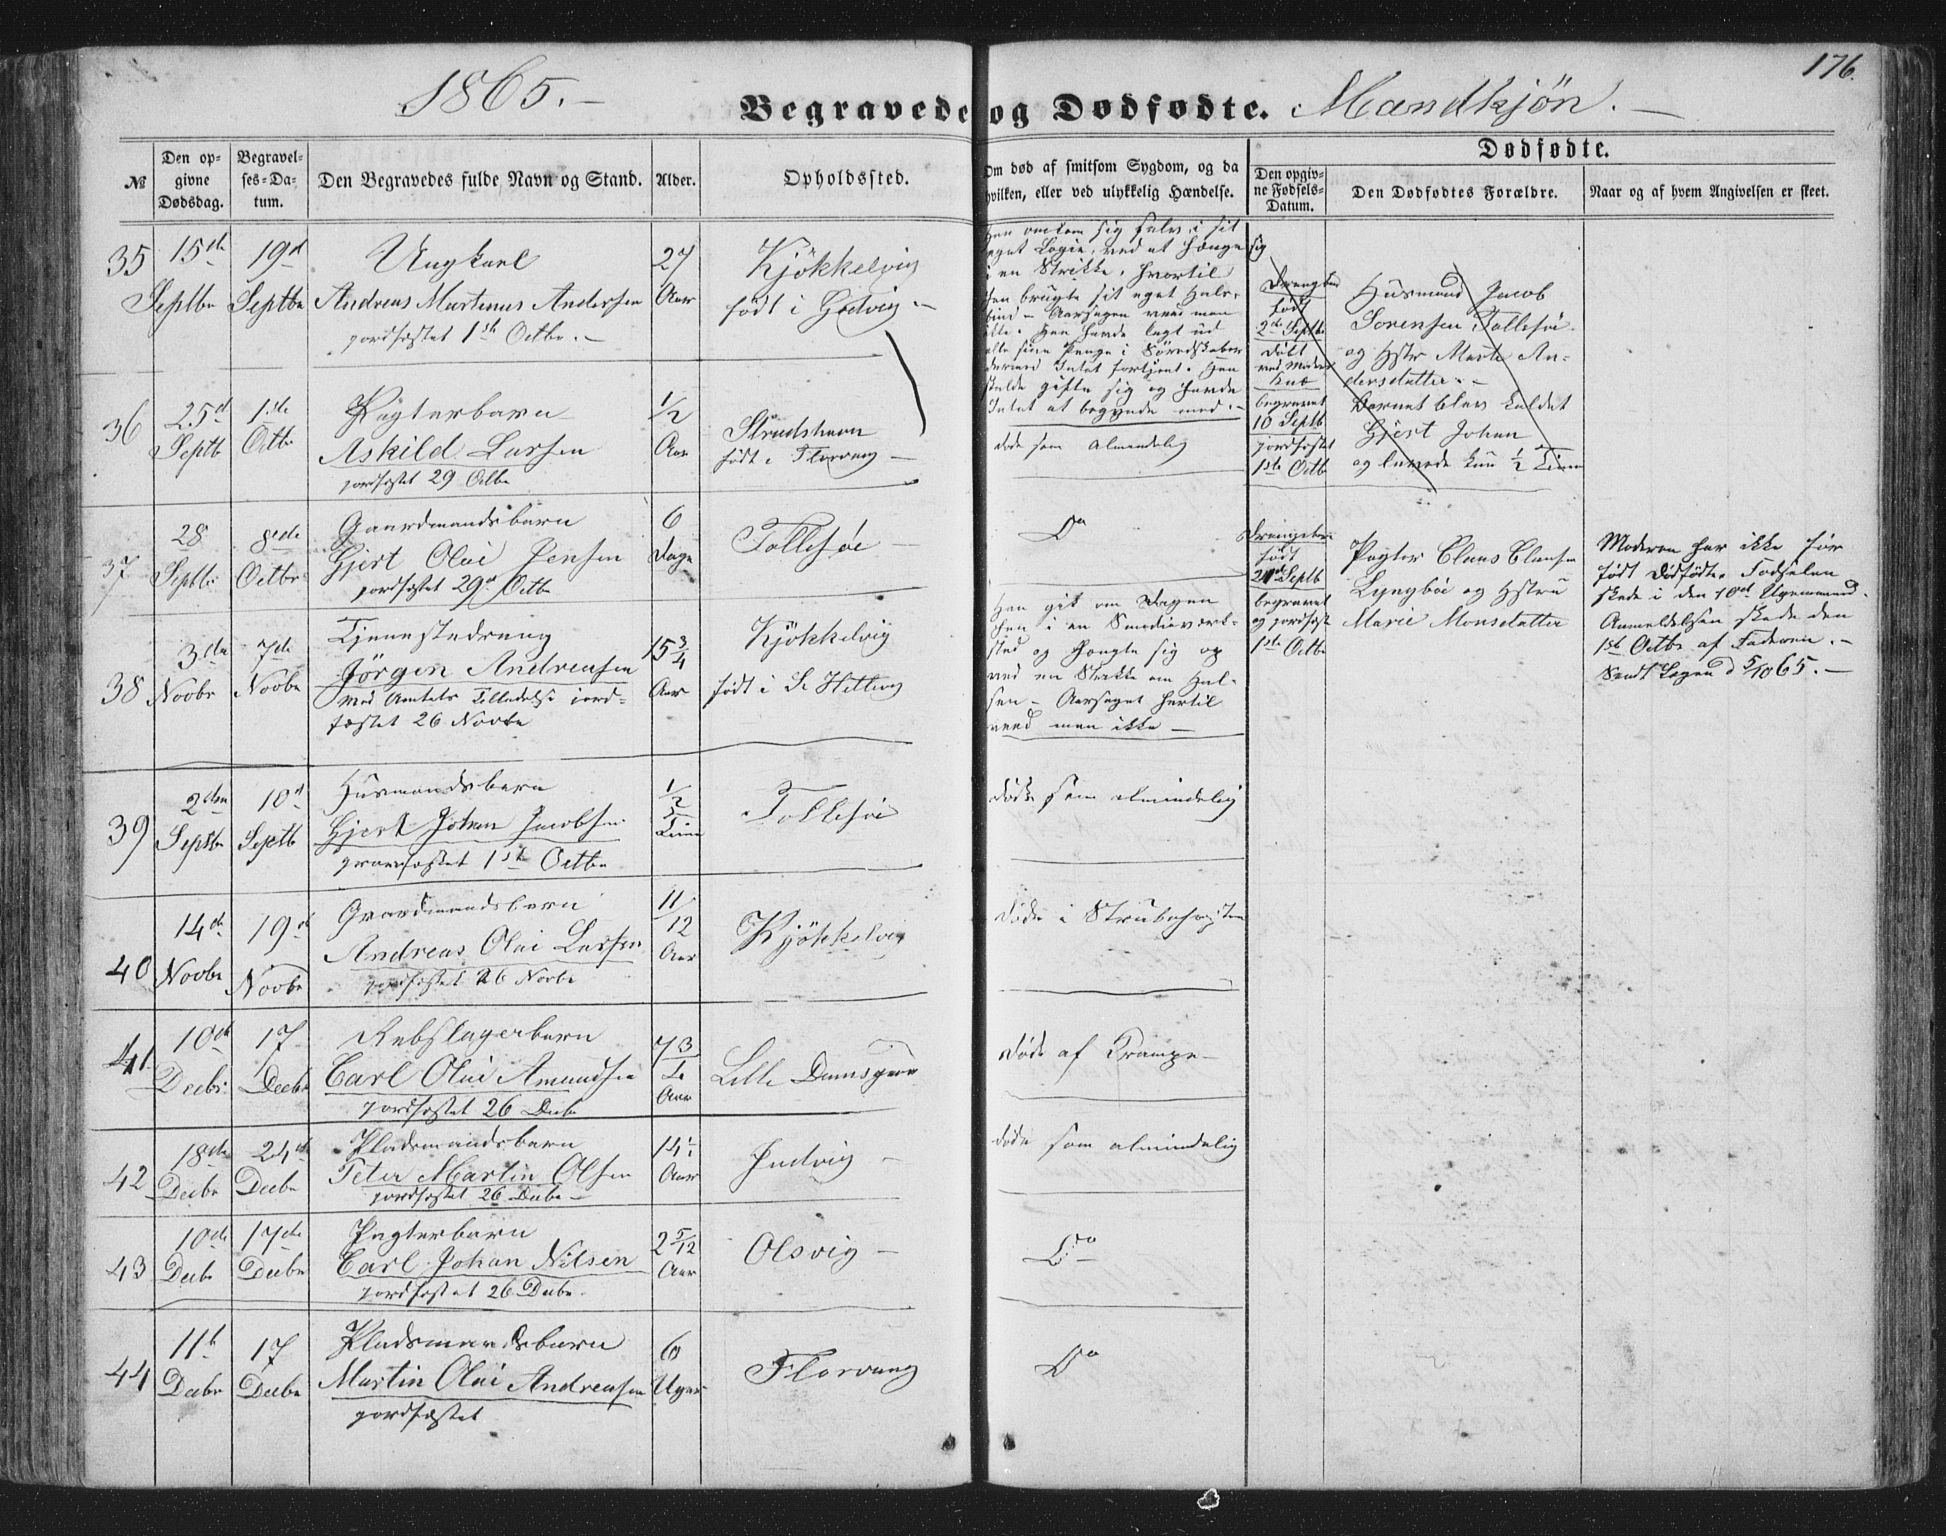 176.
1865. –
Begravede og Dødfødte. Mandkjön. –
№
Den op-
givne
Dødsdag.
Begravel-
ses-Da-
tum.
Den Begravedes fulde Navn og Stand.
Alder.
Opholdssted.
Om død af smitsom Sygdom, og da
hvilken, eller ved ulykkelig Hændelse.
Dødfødte.
Den opgiv-
ne Fødsels-
Datum.
Den Dødfødtes Forældre.
Naar og af hvem Angivelsen er skeet.
35
15de
Septbr
19de
Septbr
Ungkarl
Andreas Martinus Andersen
jordfæstet 1ste Octbr. –
27
Aar
Kjökkelvig
født i Godvig –
Han omkom sig selv i sit
eget Logie, ved at hænge sig
i en Strikke, hvortil
han brugte sit eget Hals-
bind – Aarsagen veed man
ikke. Han havde lagt ud
alle sine Penge i
Intet fortjent. Han
skulde gifte sig og havde
Intet at begynde med. –
Drengebarn
født
2den Septbr
Død
ved Moders
Knæ
begravet
10 Septb
jordfæstet
1ste Octb
Husmand Jacob
Sorensen Tollesöe
og Hstr Marte An-
dersdatter. –
Barnet blev kaldet
Gjert Johan
og levede kun ½ Time
36
25de
Septb
1ste
Octb
Pagterbarn
Askild Larsen
jordfæstet 29 Octbr
1/2
Aar
Strudshavn
født i Florvaag –
døde som almindelig
37
28
Septbr
8de
Octbr
Gaardmandsbarn
Gjert Olai Jensen
jordfæstet 29de Octbr
6
Dage
Tollesöe –
Do
Drengebarn
født
Septb
begravet
og jordfæst
1ste Octb
Pagter Claus Clausen
Lyngböe og Hstru
Marie Monsdatter
Moderen har ikke før
født Dødfødte. Fødselen
skede i den 10de Ugemaaned.
Anmeldelsen skede den
1ste Octbr af Faderen. –
Sendt Logen d 5/10 65. –
38
3die
Novbr
7de
Novbr
Tjenestedreng
Jörgen Andreasen
Med Amtets Tilladelse jord-
fæstet 26 Novbr
15 3/4
Aar
Kjökkelvig
født i S. Hetlevig
Han gik om Dagen
hen i en Smedieværk-
sted og hængte sig op
ved en Strikke om Hal-
sen – Aarsaget hertil
veed man ikke –
39
2den
Septbr
10de
Septb
Husmandsbarn
Gjert Johan Jacobsen
jordfæstet 1ste Octbr
1/2
Time
Tollesöe
døde som almindelig
40
14de
Novbr
19de
Novbr
Gaardmandsbarn
Andreas Olai Larsen
jordfæstet 26 Novbr
11/12
Aar
Kjökkelvig
døde i Strubehosten
41
10de
Decbr
17
Decbr
Rebslagerbarn
Carl Olai Amundsen
jordfæstet 26 Decbr
Aar
Lille Damsgaar
døde af Krampe –
42
18de
Decbr
24de
Decbr
Pladsmandsbarn
Peter Martin Olsen
jordfæstet 26 Decbr –
Aar
Judvig –
døde som almindelig
43
10de
Decbr
17de
Decbr
Pagterbarn
Carl Johan Nilsen
jordfæstet 26 Decbr.
2 5/12
Aar
Olsvig –
Do
44
11te
Decbr
17
Decbr
Pladsmandsbarn
Martin Olai Andreasen
jordfæstet
6
Uger
Florvaag
Do